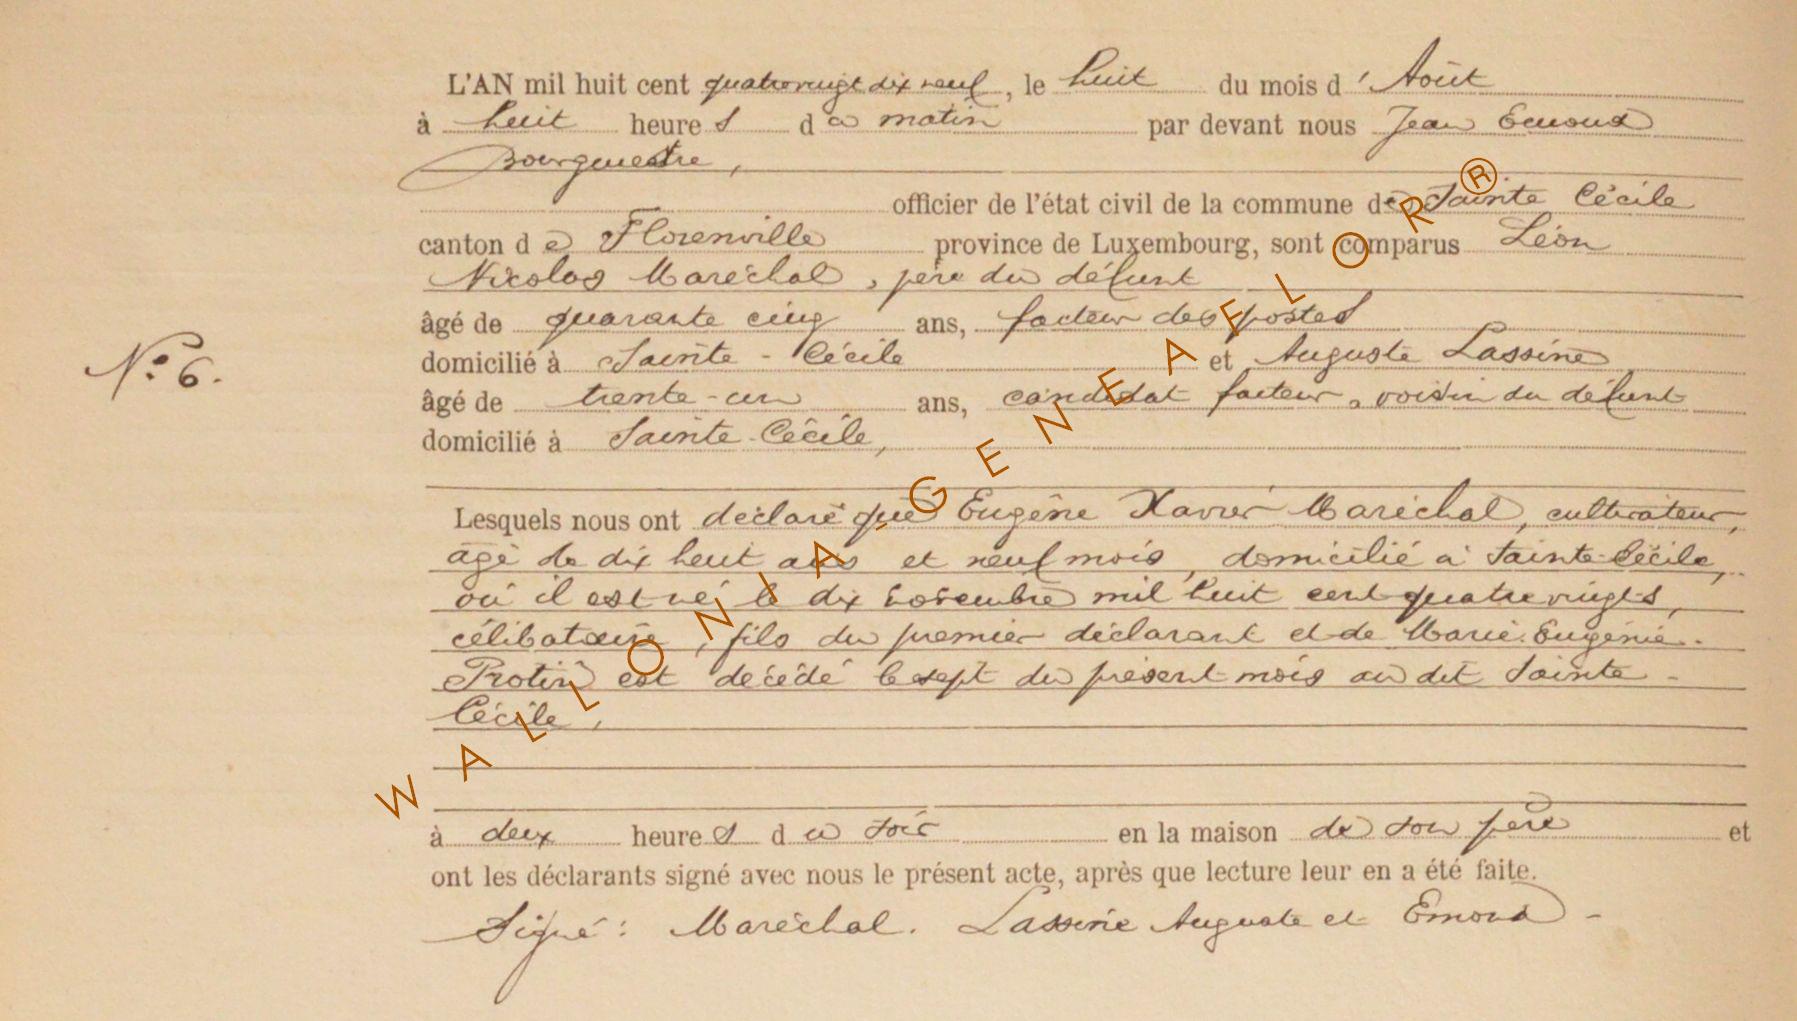 L'AN mil huit cent quatrevingt dix neuf, le huit du mois d'Août
à huit heures du matin par devant nous Jean Emond
Bourgmestre,
officier de l'état civil de la commune de Sainte Cécile
canton de Florenville province de Luxembourg, sont comparus Léon
Nicolas Maréchal, père du défunt
âgé de quarante cinq ans, facteur des postes
domicilié à Sainte-Cécile et Auguste Lassine
N° 6.
âgé de trente-un ans, candidat facteur, voisin du défunt
domicilié à Sainte-Cécile,
Lesquels nous ont déclaré que Eugène Xavier Maréchal, cultivateur,
âgé de dix huit ans et neuf mois, domicilié à Sainte-Cécile,
où il est né le dix novembre mil huit cent quatrevingts,
célibataire, fils du premier déclarant et de Marie Eugénie
Protin est décédé le sept du présent mois au dit Sainte-
Cécile,
à deux heures du soir en la maison de son père et
ont les déclarants signé avec nous le présent acte, après que lecture leur en a été faite.
Signé: Maréchal. Lassine Auguste et Emond -
WALLONIA-GENEAFLOR®